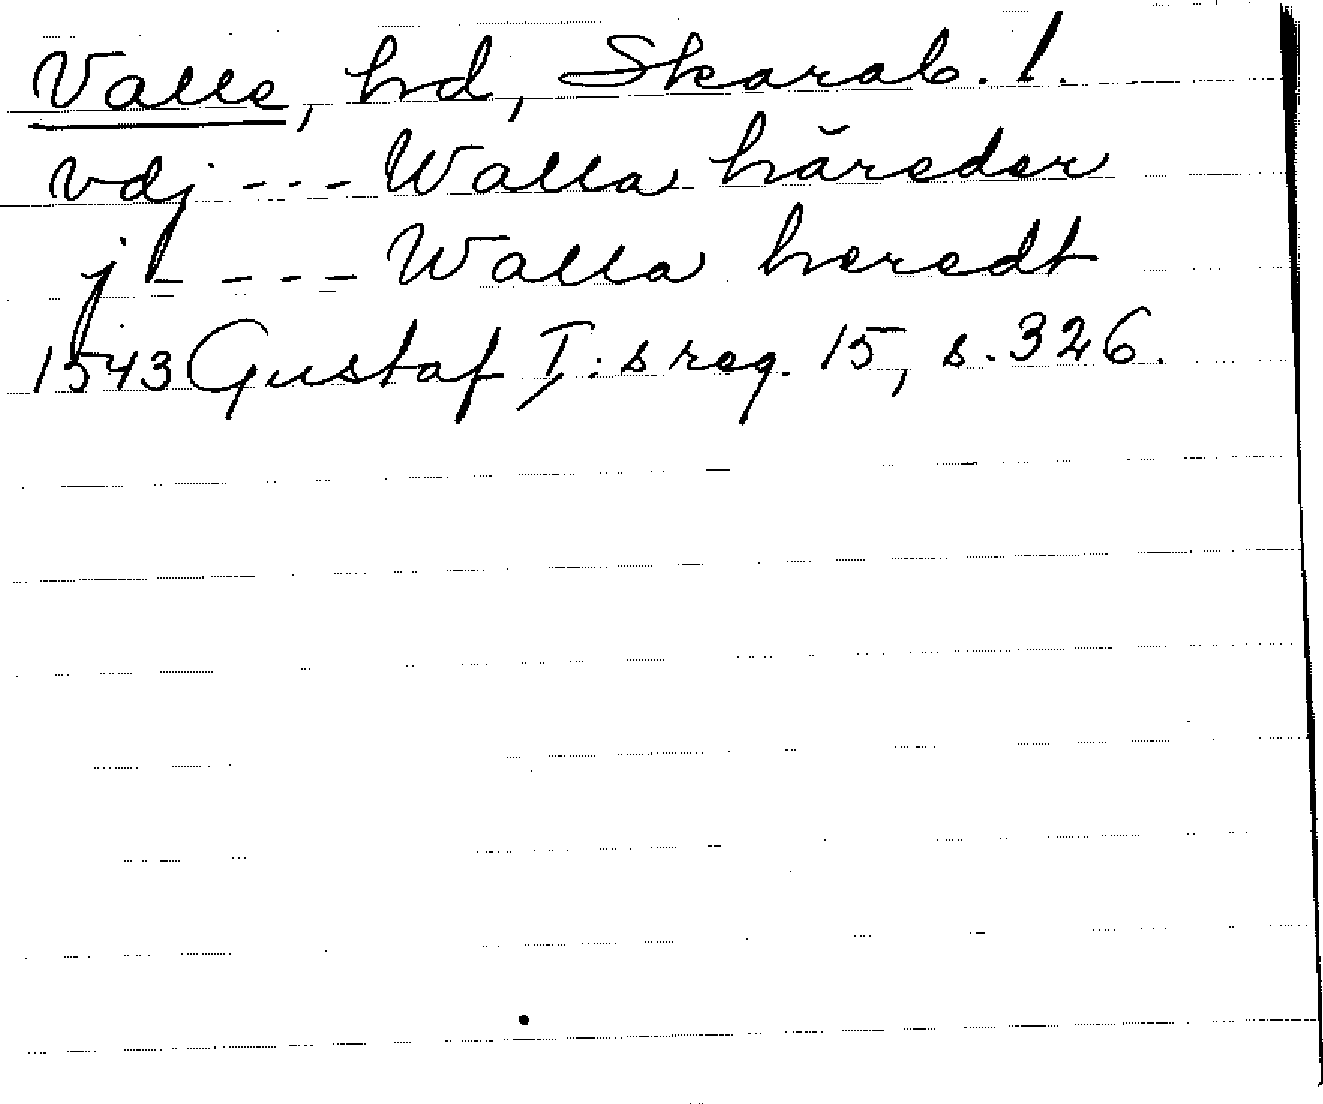 Valle, hd, Skarab. l.
vdj --- Walla häreder
j ---- Walla heredt
1543 Gustaf I:s reg. 15, s. 326.